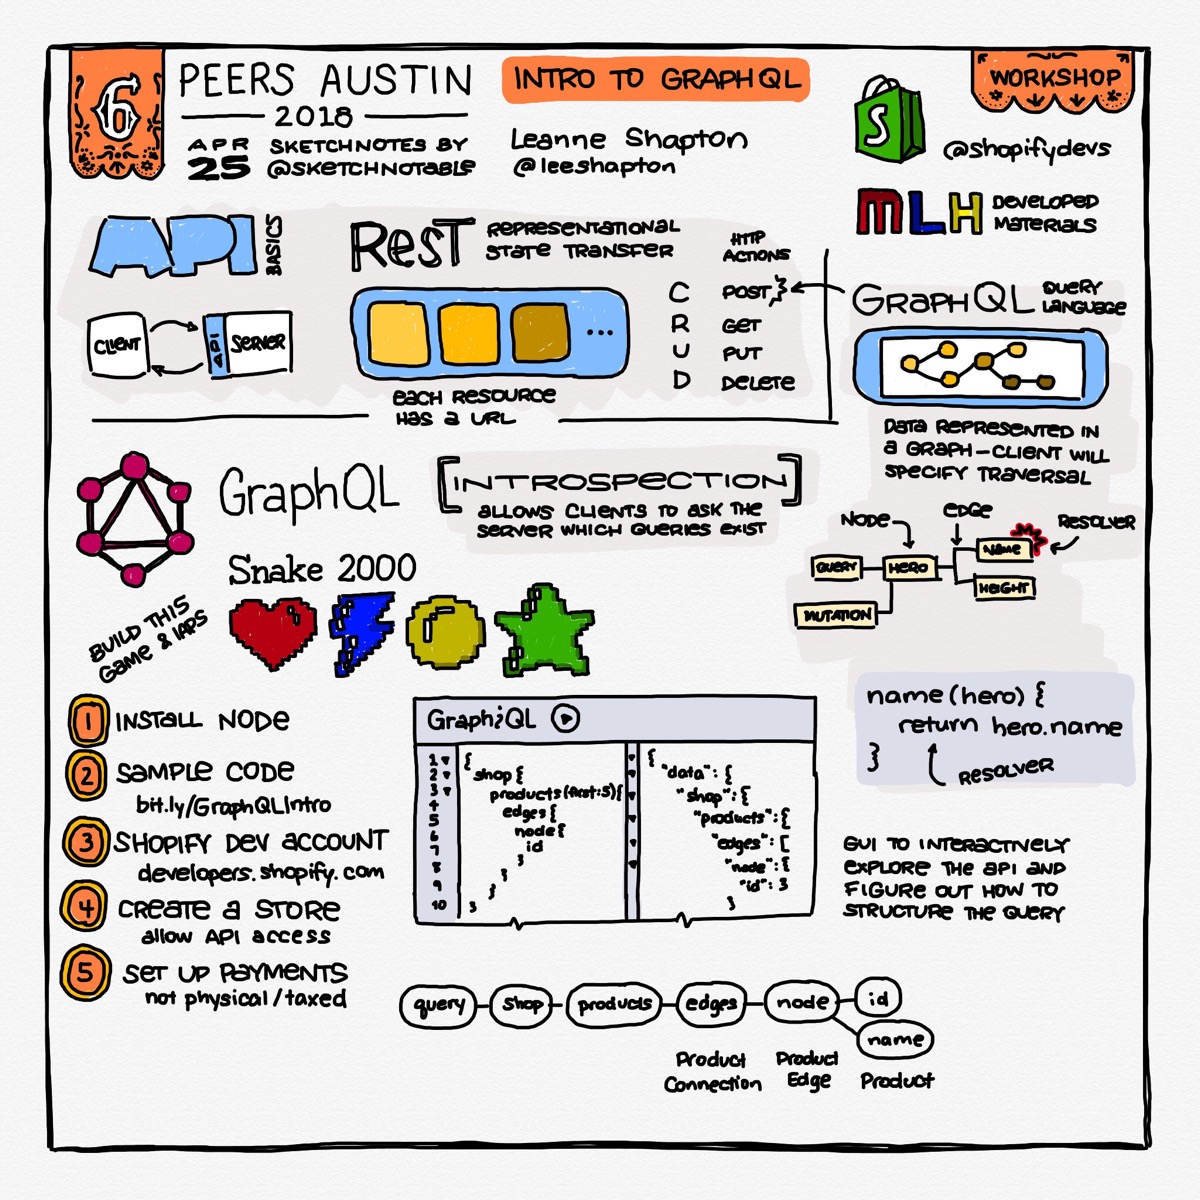 6
PEERS AUSTIN
2018
APR
25
SKETCHNOTES BY
@SKETCHNOTABLE
INTRO TO GRAPHQL
Leanne Shapton
@leeshapton
WORKSHOP
S
@shopifydevs
MLH
DEVELOPED
MATERIALS
API
BASICS
CLIENT
API
SERVER
ReST
REPRESENTATIONAL
STATE TRANSFER
...
EACH RESOURCE
HAS A URL
HTTP
ACTIONS
C POST }
R GET
U PUT
D DELETE
GRAPHQL
QUERY
LANGUAGE
DATA REPRESENTED IN
A GRAPH-CLIENT WILL
SPECIFY TRAVERSAL
GraphQL
[INTROSPECTION]
ALLOWS CLIENTS TO ASK THE
SERVER WHICH QUERIES EXIST
NODE
EDGE
RESOLVER
QUERY
HERO
NAME
HEIGHT
MUTATION
Snake 2000
BUILD THIS
GAME & IAPS
name(hero) {
return hero.name
}
RESOLVER
1 INSTALL NODE
2 SAMPLE CODE
bit.ly/GraphQLIntro
3 SHOPIFY DEV ACCOUNT
developers.shopify.com
4 CREATE A STORE
allow API access
5 SET UP PAYMENTS
not physical/taxed
GraphiQL
1 {
2 shop {
3 products(first:5){
4 edges {
5 node {
6 id
7 }
8 }
9 }
10 }
{
"data": {
"shop": {
"products": {
"edges": [
"node": {
"id": 3
}
GUI TO INTERACTIVELY
EXPLORE THE API AND
FIGURE OUT HOW TO
STRUCTURE THE QUERY
query
shop
products
edges
node
id
name
Product
Connection
Product
Edge
Product